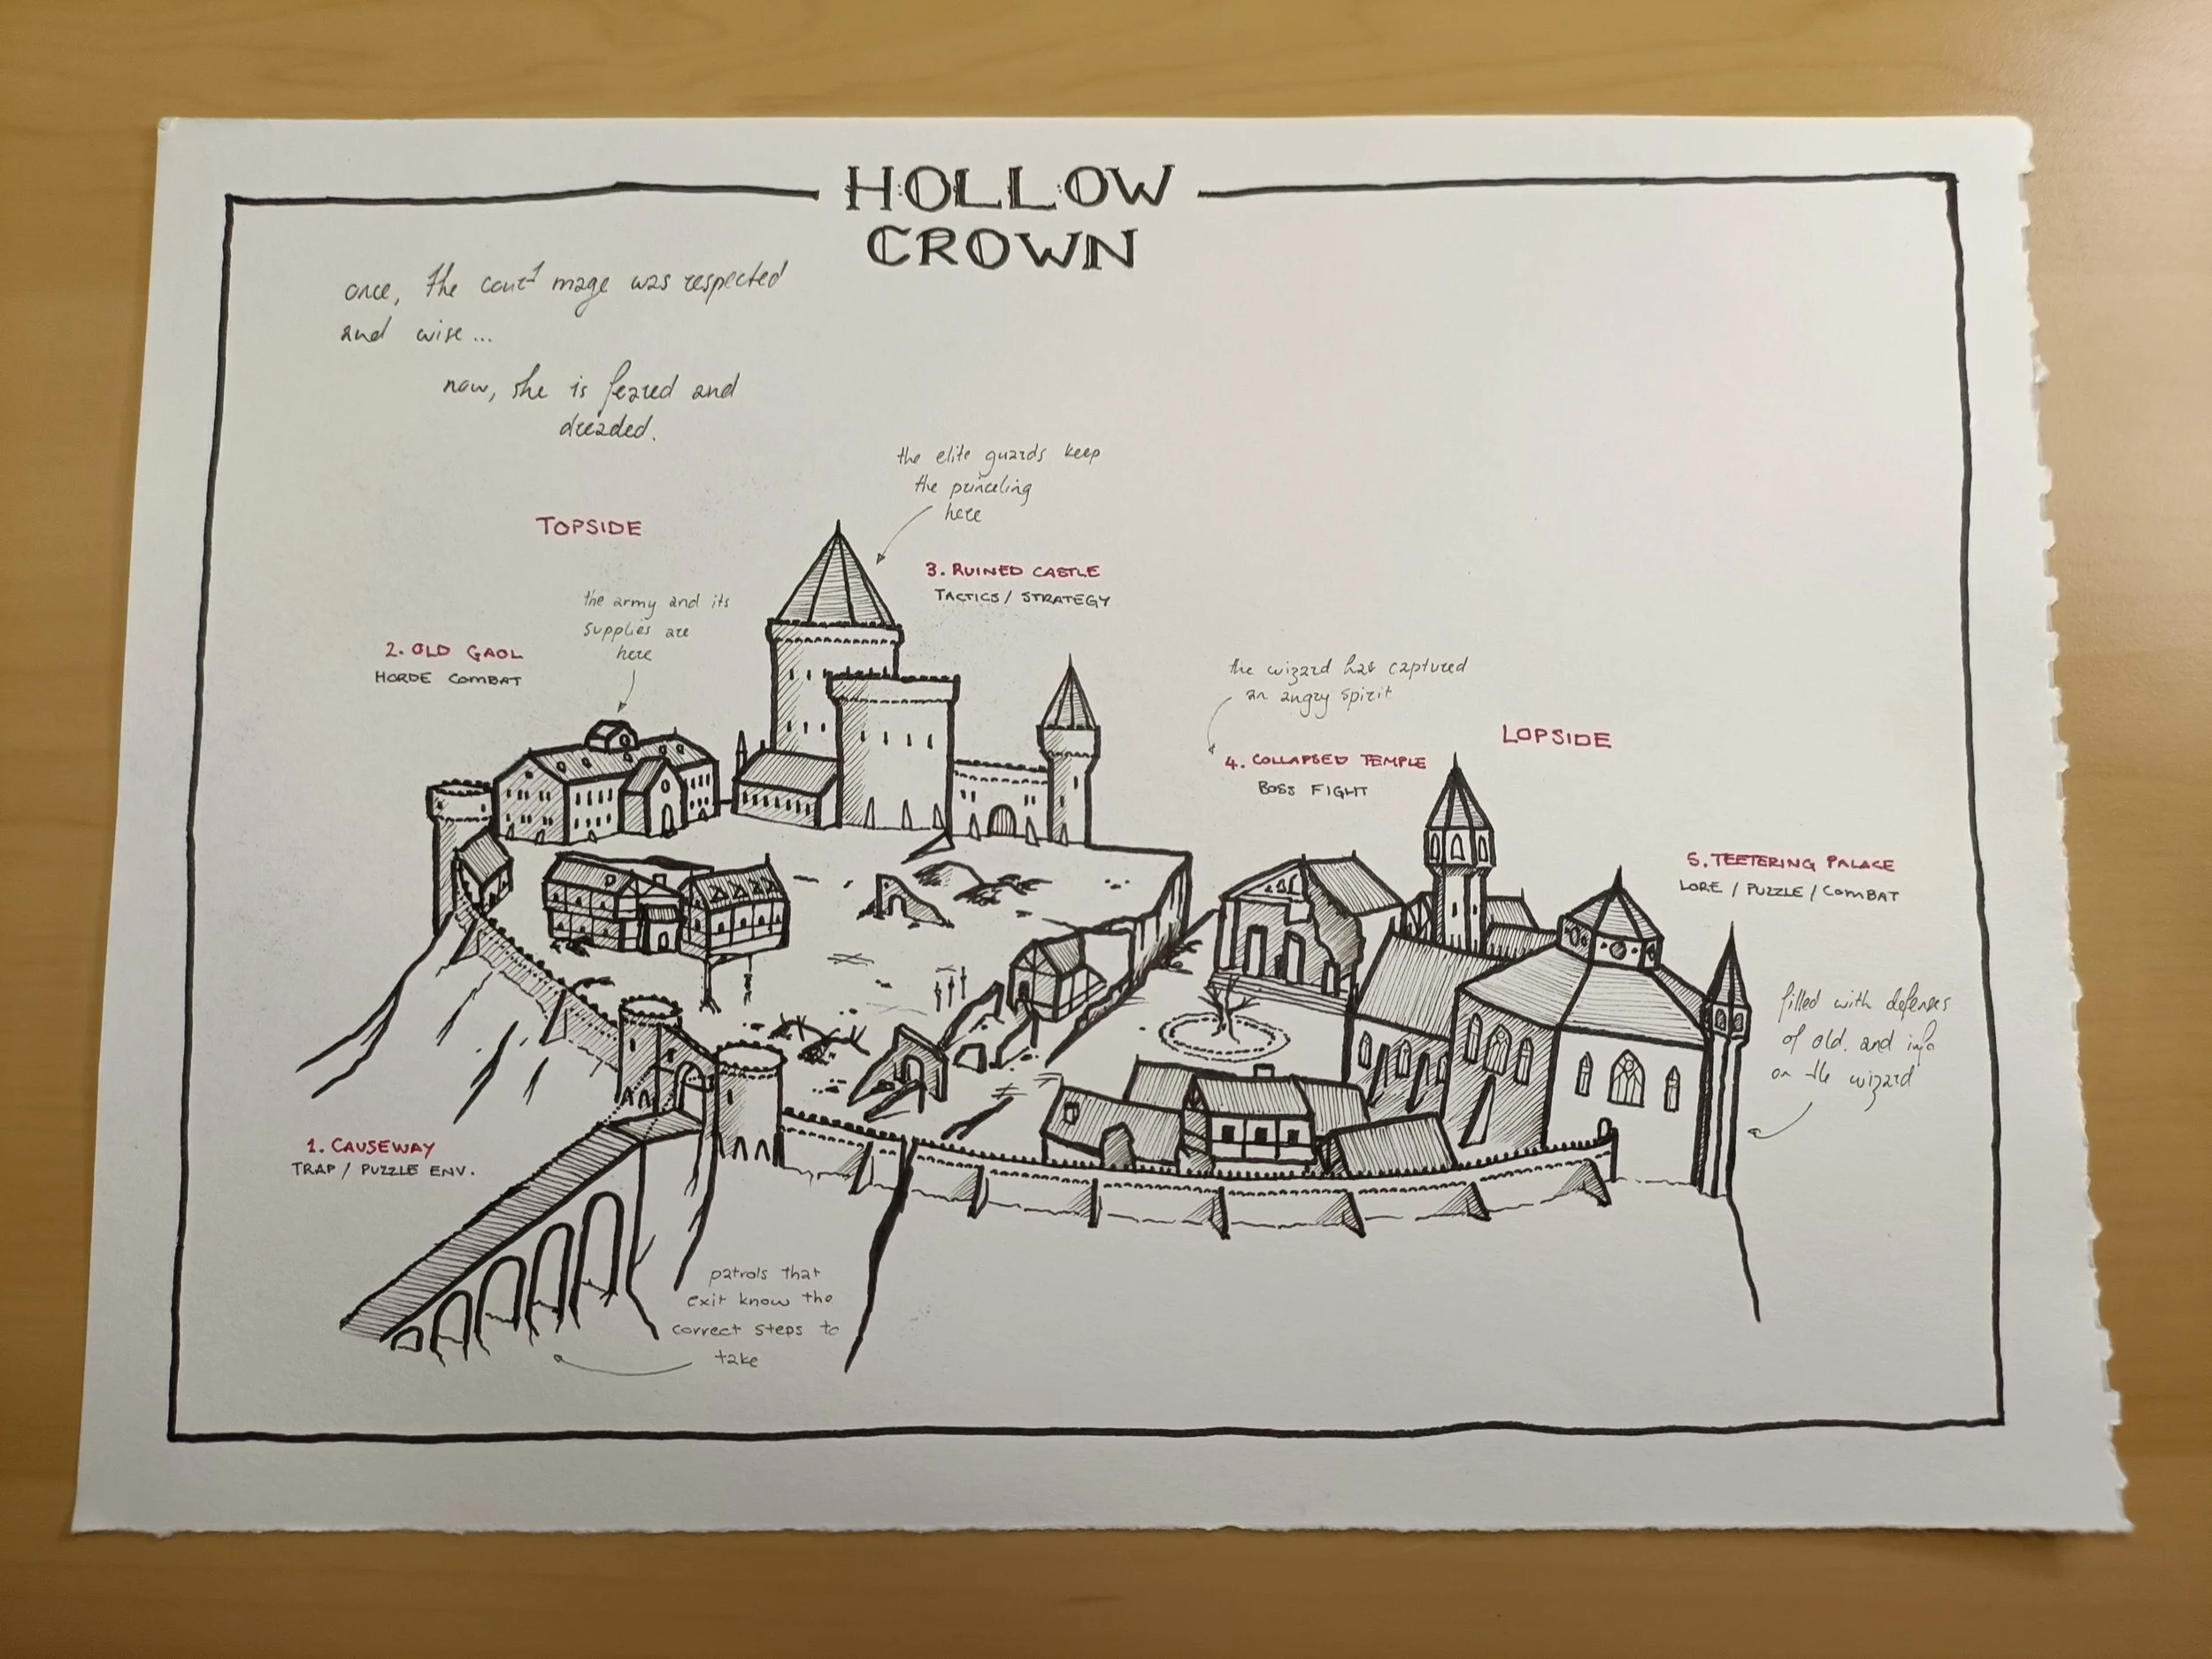 HOLLOW
CROWN
once, the court mage was respected
and wise...
now, she is feared and
dreaded.
the elite guards keep
the princeling
here
TOPSIDE
3. RUINED CASTLE
TACTICS / STRATEGY
the army and its
supplies are
here
2. OLD GAOL
HORDE COMBAT
the wizard has captured
an angry spirit
LOPSIDE
4. COLLAPSED TEMPLE
BOSS FIGHT
5. TEETERING PALACE
LORE / PUZZLE / COMBAT
filled with defenses
of old. and info
on the wizard
1. CAUSEWAY
TRAP / PUZZLE ENV.
patrols that
exit know the
correct steps to
take